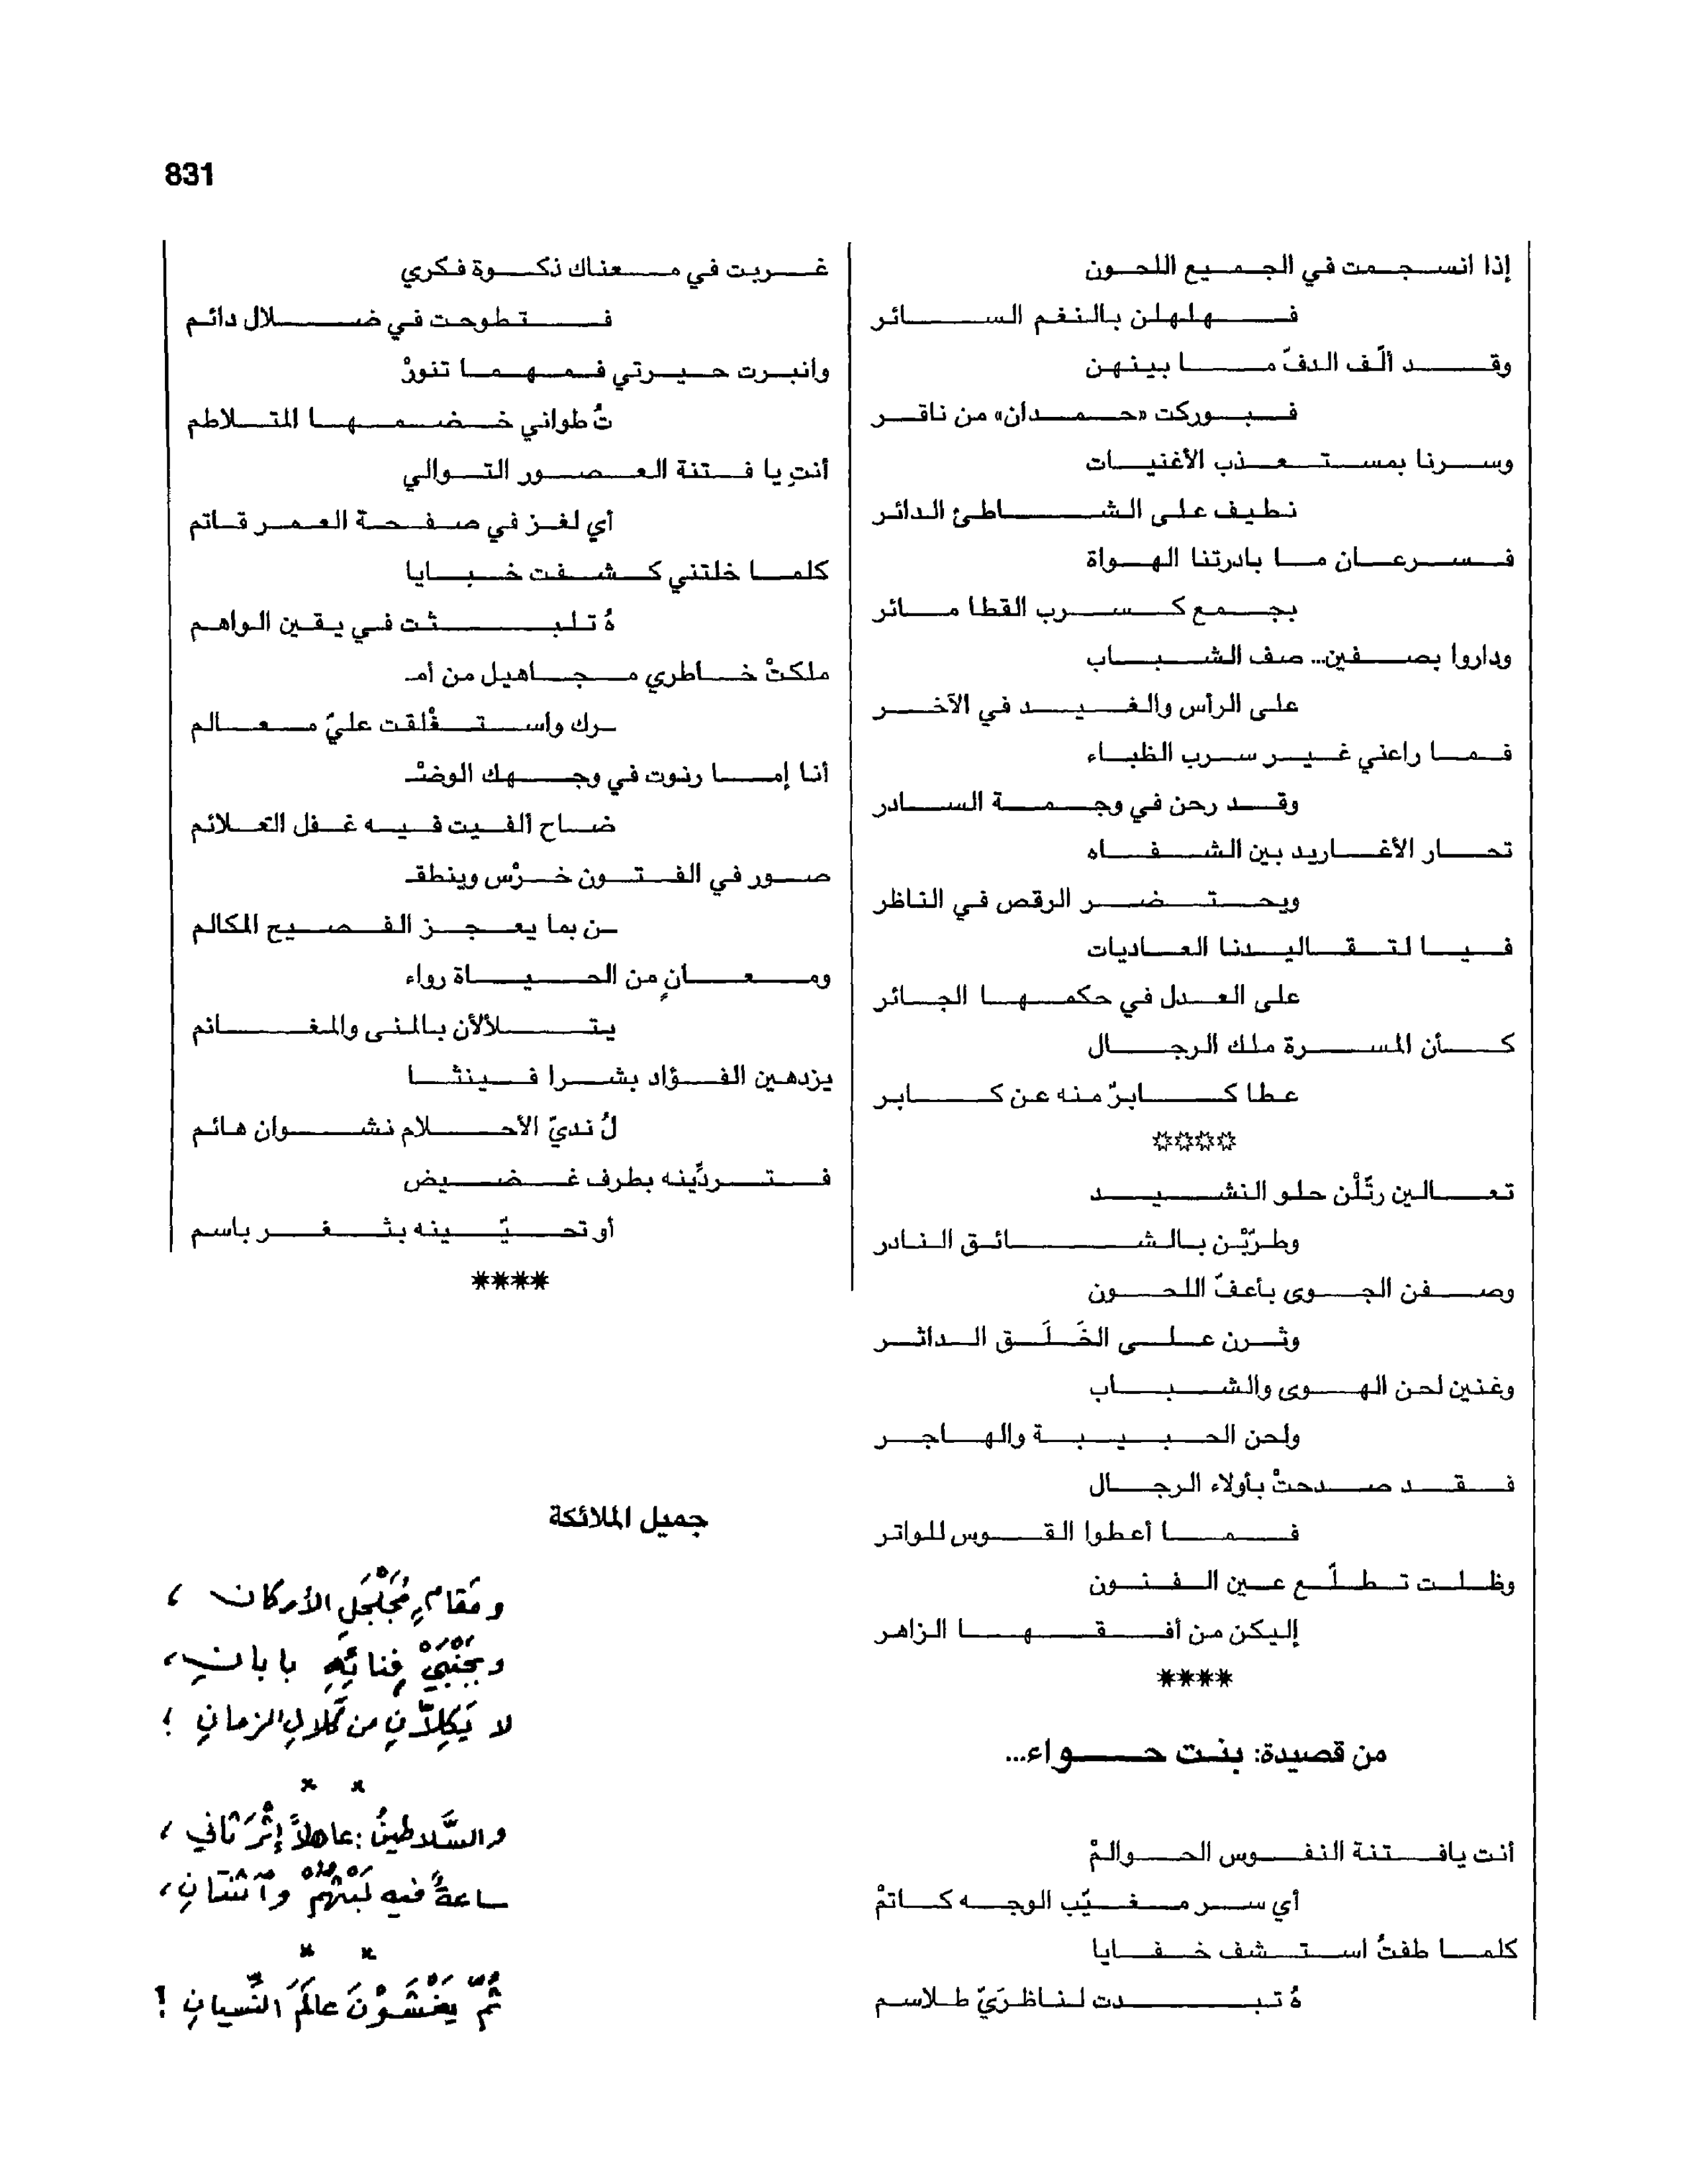 831
إذا انسجمت في الجميع اللحون
فهلهلن بالنغم السائر
وقد ألّف الدفّ ما بينهن
فبوركت «حمدان» من ناقر
وسرنا بمستعذب الأغنيات
نطيف على الشاطئ الدائر
فسرعان ما بادرتنا الهواة
بجمع كسرب القطا مائر
وداروا بصفين... صف الشباب
على الرأس والغيد في الآخر
فما راعني غير سرب الظباء
وقد رحن في وجمة السادر
تحار الأغاريد بين الشفاه
ويحتضر الرقص في الناظر
فيا لتقاليدنا العاديات
على العدل في حكمها الجائر
كأن المسرة ملك الرجال
عطا كابرٌ منه عن كابر
****
تعالين رتّلْن حلو النشيد
وطرّبْن بالشائق النادر
وصفن الجوى بأعفّ اللحون
وثرن على الخَلَق الداثر
وغنين لحن الهوى والشباب
ولحن الحبيبة والهاجر
فقد صدحتْ بأولاء الرجال
فما أعطوا القوس للواتر
وظلت تطلّع عين الفنون
إليكن من أفقها الزاهر
****
من قصيدة: بنت حواء...
أنت يافتنة النفوس الحوالمْ
أي سر مغيّب الوجه كاتمْ
كلما طفتُ استشف خفايا
هُ تبدت لناظرَيّ طلاسم
غربت في معناك ذكوة فكري
فتطوحت في ضلال دائم
وانبرت حيرتي فمهما تنورْ
تُ طواني خضمها المتلاطم
أنتِ يا فتنة العصور التوالي
أي لغز في صفحة العمر قاتم
كلما خلتني كشفت خبايا
هُ تلبثت في يقين الواهم
ملكتْ خاطري مجاهيل من أمـ
ـرك واستغْلقت عليّ معالم
أنا إما رنوت في وجهك الوضْـ
ضاح ألفيت فيه غفل التعلائم
صور في الفتون خرْس وينطقـ
ـن بما يعجز الفصيح المكالم
ومعانٍ من الحياة رواء
يتلألأن بالمنى والمغانم
يزدهين الفؤاد بشرا فينثا
لُ نديّ الأحلام نشوان هائم
فتردِّينه بطرف غضيض
أو تحيّينه بثغر باسم
****
جميل الملائكة
ومَقامٍ مُجَلْجَلِ الأركانِ ،
وبجَنْبَيْ فِنائِهِ بابانِ ،
لا يَكِلاّنِ من كَلالِ الزمانِ ؛
* *
والسَّلاطينُ : عاهلاً إثْرَ ثاني ،
ساعةً فيه لَبْثُهُمْ وآثنتانِ ،
* *
ثُمّ يغْشَوْنَ عالَمَ النِّسيانِ !